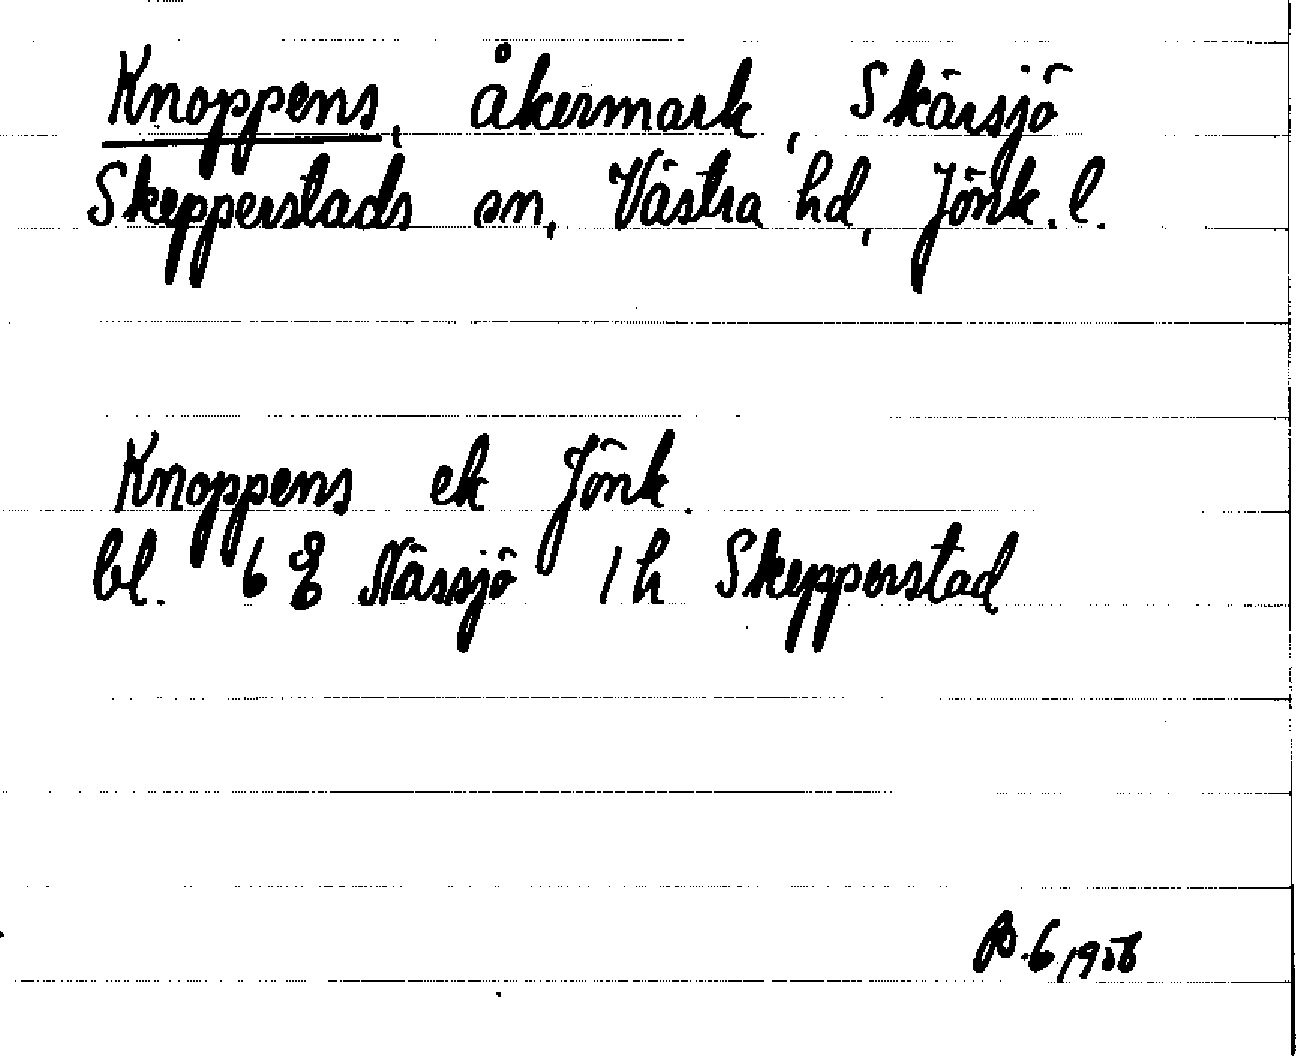 Knoppens, åkermark, Skärsjö
Skepperstads sn, Västra hd, Jönk. l.
Knoppens ek Jönk.
bl. 6 E Nässjö 1 h Skepperstad
B. 6 1956